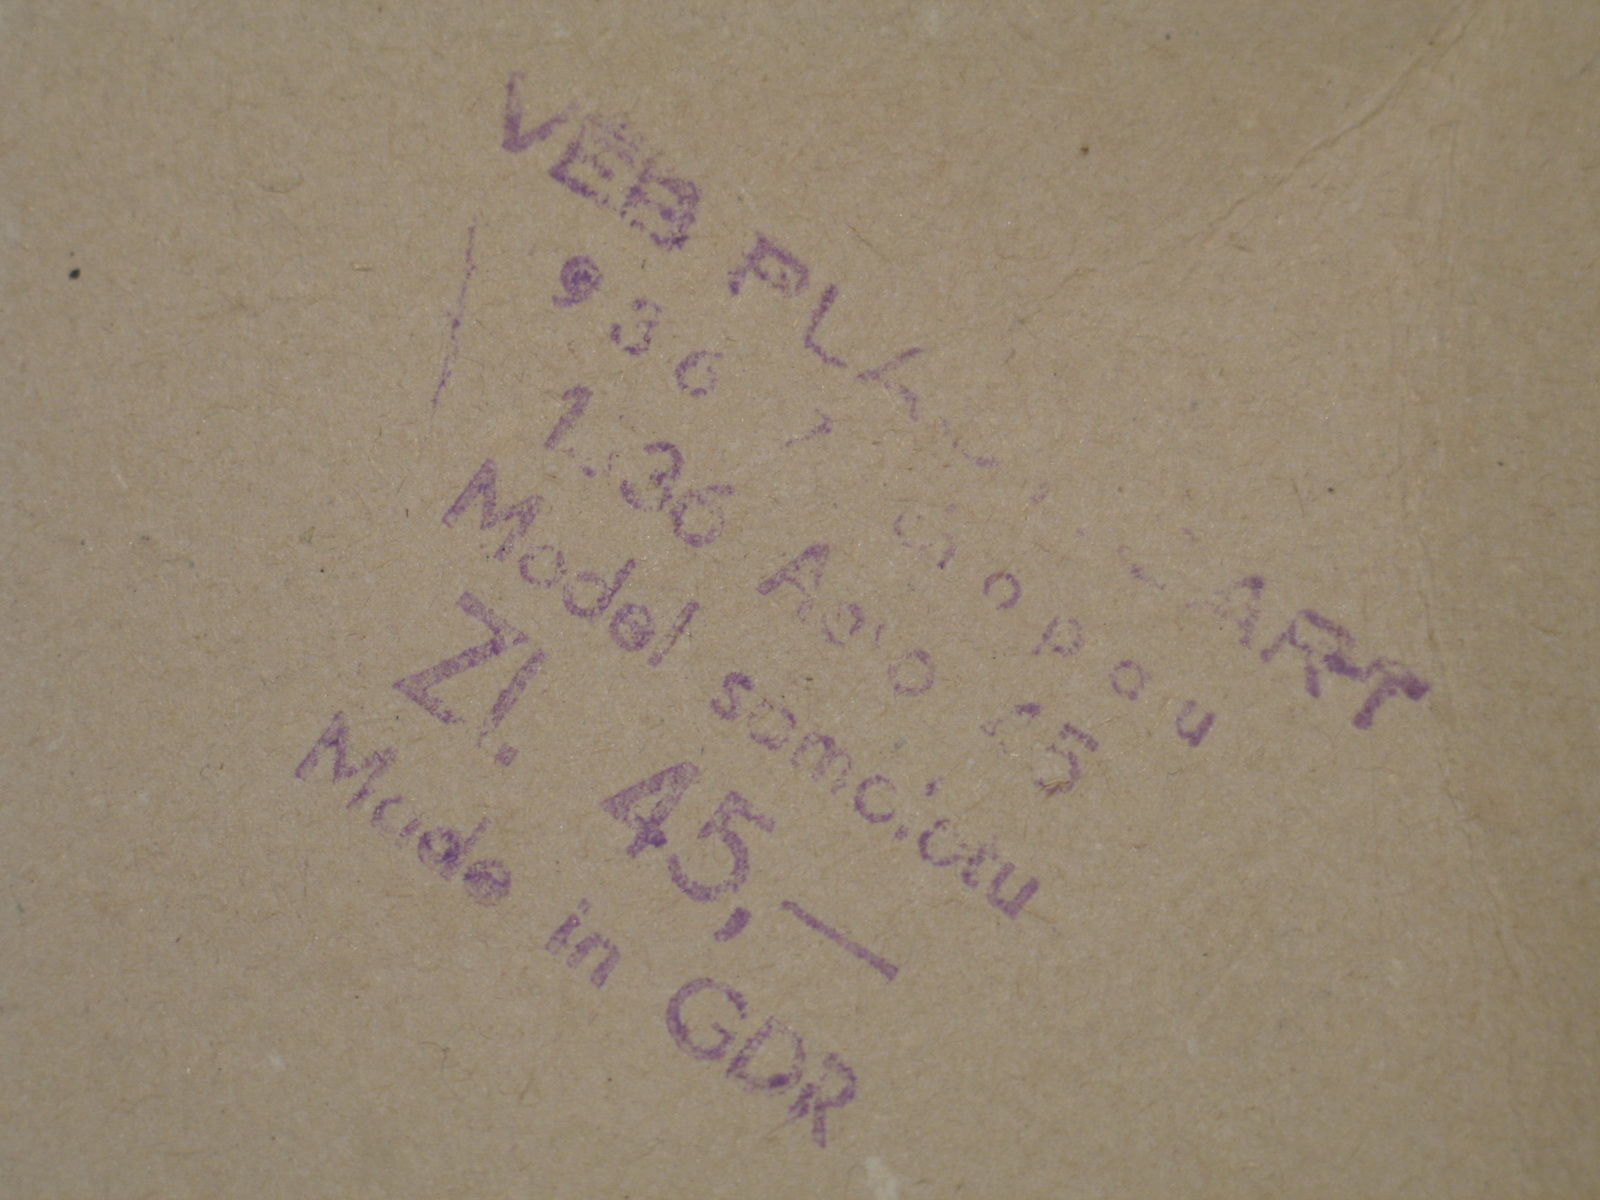 VEB PLASTICART
936 Zschopau
1:36 Aero 45
Model samolotu
Zl. 45,—
Made in GDR